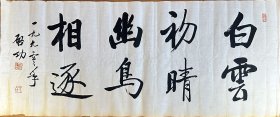 白雲
初晴
幽鳥
相逐
一九九零年
啟功